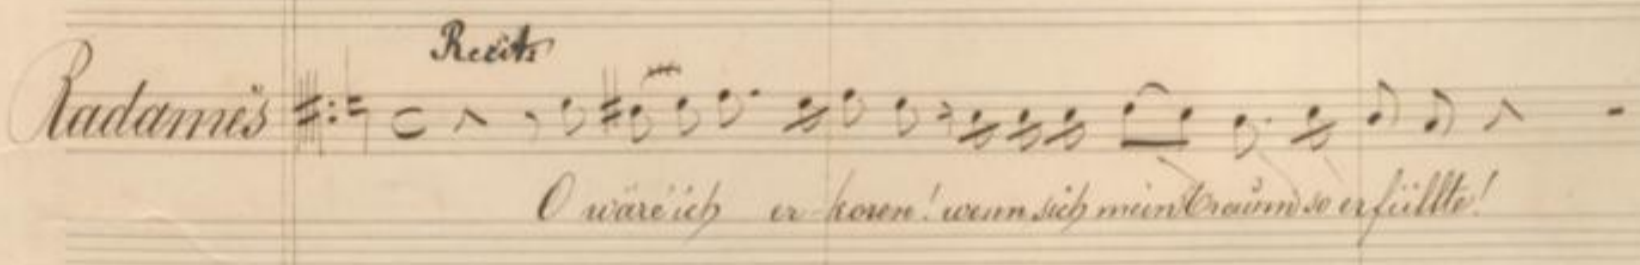 Recit:
Radamès
O wäre ich er-koren! wenn sich mein Traum so erfüllte!